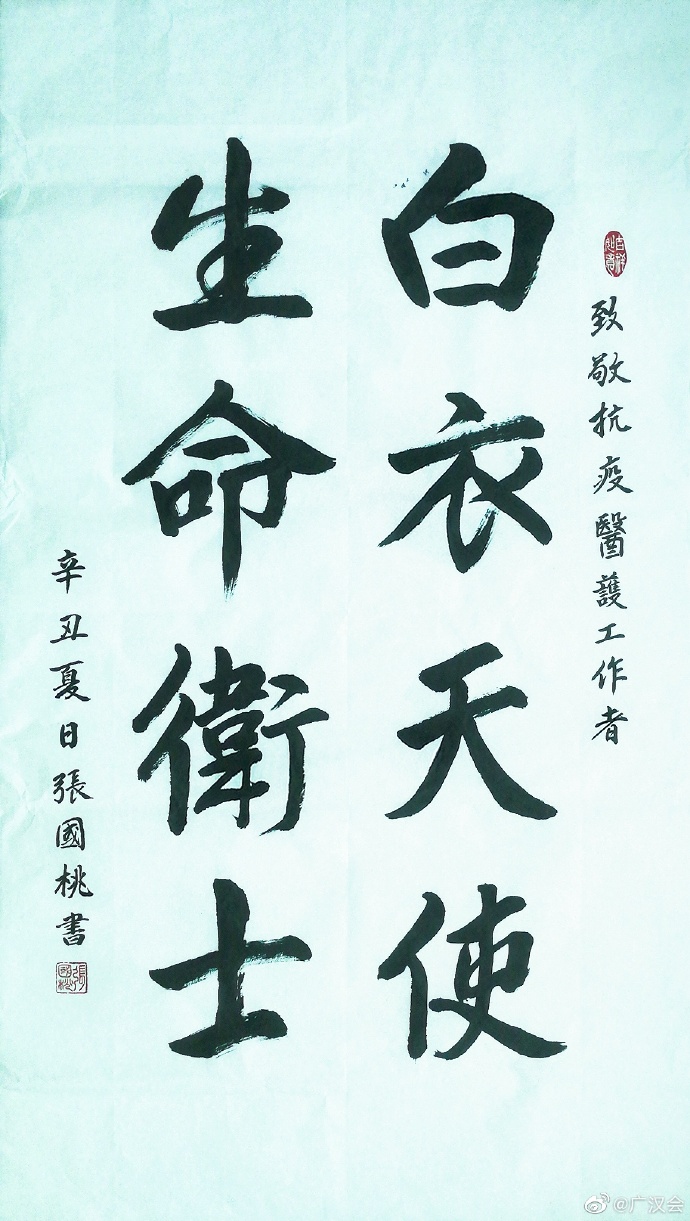 致敬抗疫醫護工作者
白衣天使
生命衛士
辛丑夏日張國桃書
張國桃
@广汉会